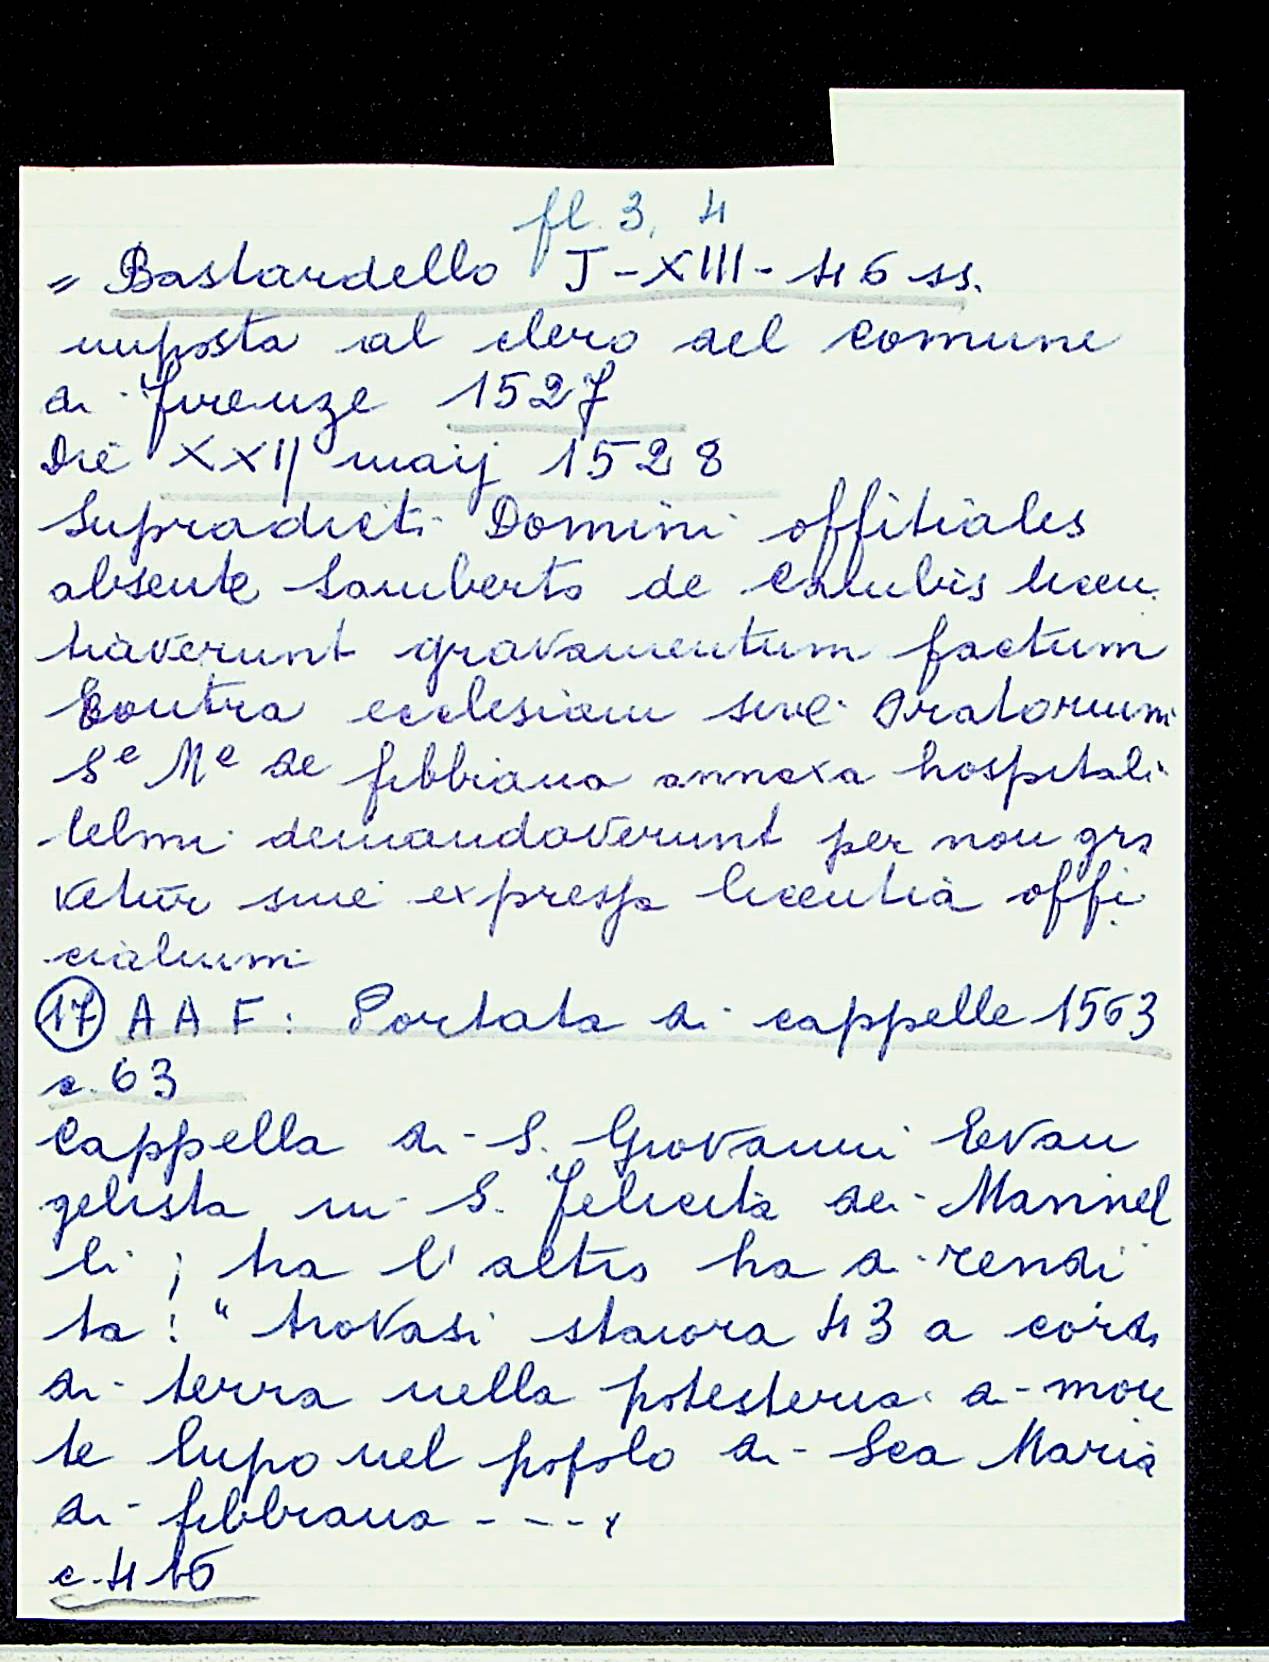 fl. 3, 4
= Bastardello J-XIII-46 ss.
imposta al clero del comune
di Firenze 1527
Die XXIJ maij 1528
Supradicti Domini offitiales
absente Lamberto de licen
tiaverunt gravamentum factum
Contra ecclesiam sive Oratorium
Se Me de fibbiana annexa hospitali
lelmi demandaverunt per non gra
vetur sine expressa licentia offi
cialium
17 A A F: Portata di cappelle 1563
c. 63
Cappella di S. Giovanni Evan
gelista in S. Felicita dei Mannel
li; tra l'altro ha di rendi
ta: "trovasi staiora 43 a corda
di terra nella potesteria di mon
te lupo nel popolo di Sca Maria
di fibbiana ----
c. 416